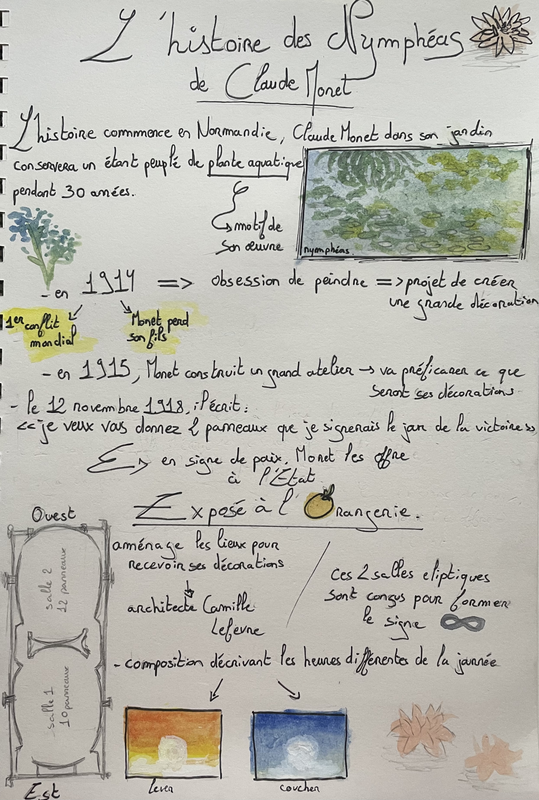 L'histoire des Nymphéas
de Claude Monet
L'histoire commence en Normandie, Claude Monet dans son jardin
conservera un étant peuplé de plante aquatique
pendant 30 années.
motif de
son œuvre
nymphéas
- en 1914 => obsession de peindre => projet de créer
une grande décoration
1er conflit
mondial
Monet perd
son fils
- en 1915, Monet construit un grand atelier → va préficarer ce que
seront ses décorations
- le 12 novembre 1918, il écrit :
<< je veux vous donnez 2 panneaux que je signerais le jour de la victoire >>
en signe de paix, Monet les offre
à l'État
Exposé à l'Orangerie.
Ouest
salle 2
12 panneaux
salle 1
10 panneaux
Est
aménage les lieux pour
recevoir ses décorations
architecte Camille
Lefevre
ces 2 salles eliptiques
sont conçus pour former
le signe ∞
- composition décrivant les heures différentes de la journée
lever
coucher